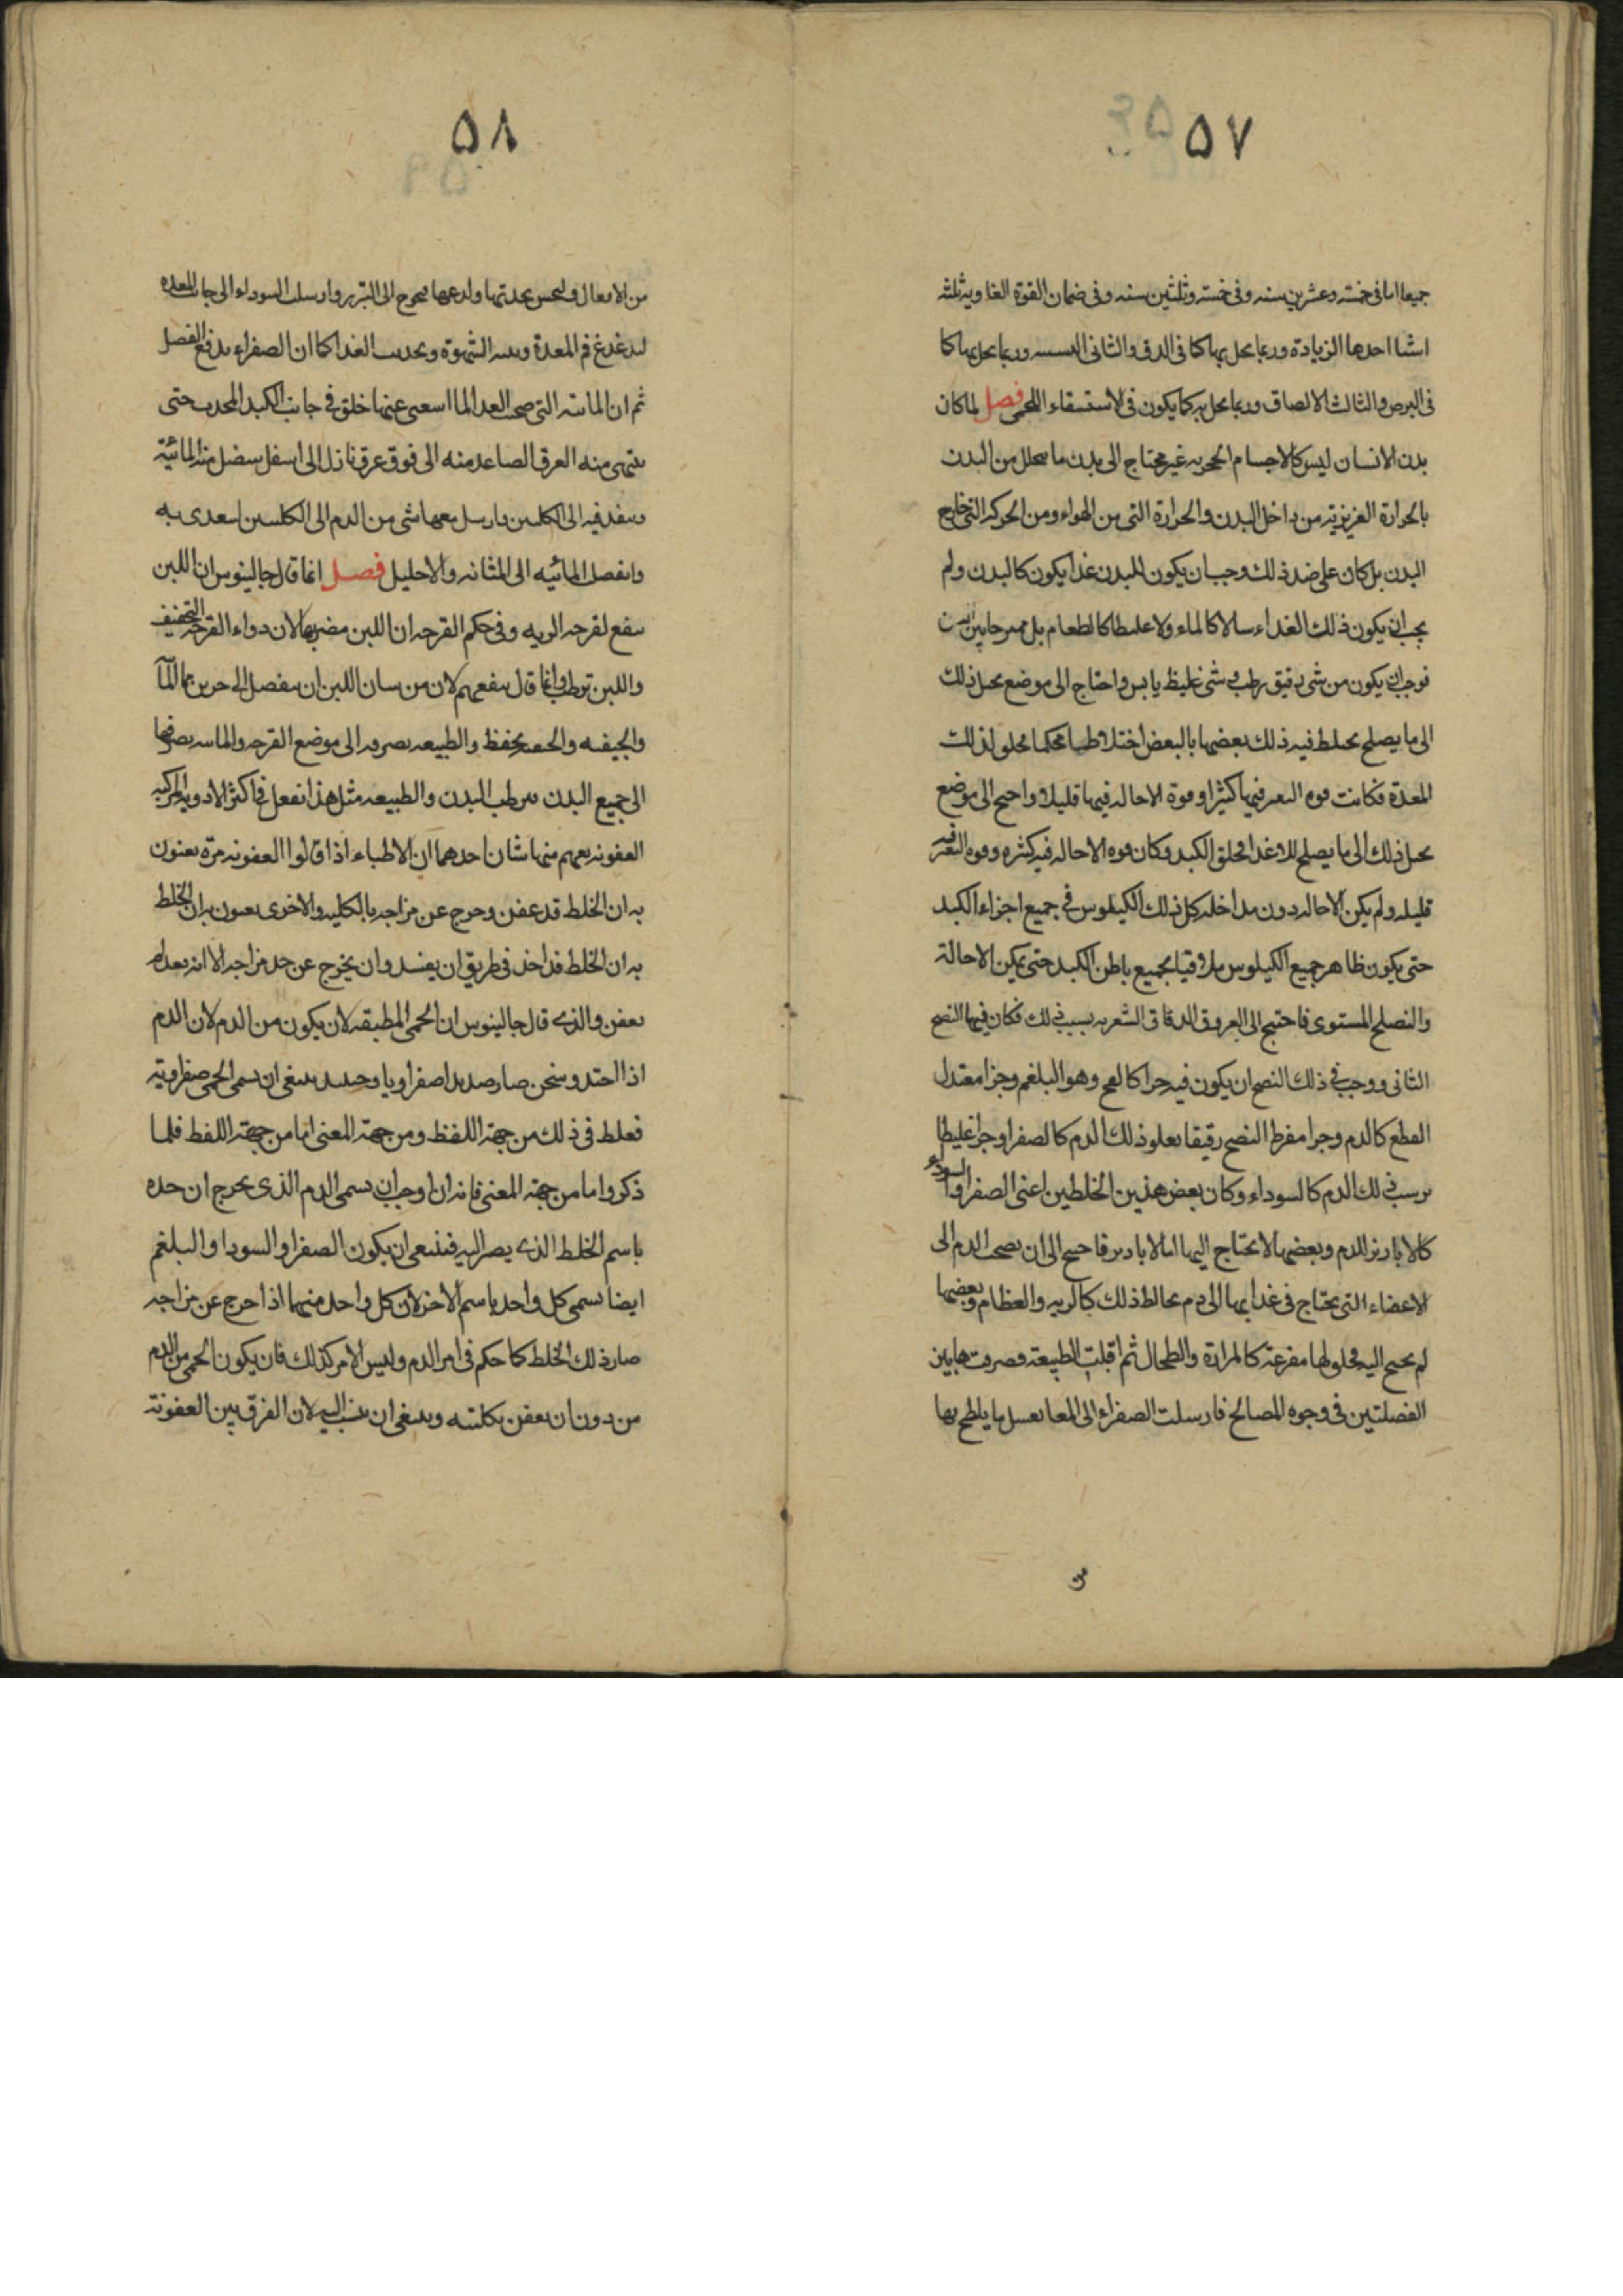 ٥٧
جميعا اما فى خمسة وعشرين سنه وفى خمسة وثلثين سنه وفى ضمان القوة الغاوية ثلثه
اشيا احدها الزيادة وربما يحل بها كما فى الدق والثانى وربما يحل بها كما
فى البرص والثالث الالصاق وربما يحل به كما يكون فى الاستسقاء اللحمى فصل لما كان
بدن الانسان ليس كالاجسام الحجريه غير محتاج الى بدل ما يتحلل من البدن
بالحرارة الغريزية من داخل البدن والحرارة التى من الهواء ومن الحركه التى خارج
البدن بل كان على ضد ذلك وجب ان يكون للبدن غذا يكون كالبدن ولم
يجب ان يكون ذلك الغداء سالا كالماء ولا غليطا كالطعام بل ممرجا بين
فوجب ان يكون من شى رقيق رطب و شى غليظ يابس واحتاج الى موضع يحل ذلك
الى ما يصلح يحلط فيه ذلك بعضها بالبعض اختلاطا محكما فخلق لذلك
المعدة فكانت قوه فيها كثيرا وقوة الاحاله فيها قليلا واحتج الى موضع
يحل ذلك الى ما يصلح للاغذا فخلق الكبد وكان قوه الاحاله فيه كثره وقوه فيه
قليله ولم يكن الاحاله دون مداخله كل ذلك الكيلوس فى جميع اجزاء الكبد
حتى يكون ظاهر جميع الكيلوس ملاقيا بجميع باطن الكبد حتى يمكن الاحالة
والنصلح المستوى فاحتيج الى العروق الدقاق الشعريه بسبب ذلك فكان فيها النضج
الثانى ووجب فى ذلك النضج ان يكون فيه جزا كالفج وهو البلغم وجزا معتدل
القطع كالدم وجزا مفرط النضج رقيقا يعلو ذلك الدم كالصفرا وجزا غليظا
يرسب ذلك الدم كالسوداء وكان بعض هذين الخلطين اعنى الصفرا والسوداء
كالابازير للدم وبعضها لا يحتاج اليها اما الابازير فاحتيج الى ان يصحب الدم الى
الاعضاء التى يحتاج فى غذايها الى دم يخالط ذلك كالريه والعظام وبعضها
لم يحتج اليه فخلق لها مفرغة كالمرارة والطحال ثم اقبلت الطبيعة فصرفت هابين
الفصلتين فى وجوه المصالح فارسلت الصفراء الى المعا يغسل ما يلطخ بها
من
٥٨
من الاثفال وليحس بحدتها ولدعها فيحوج الى التبرز وارسلت السوداء الى جانب المعده
ليدغدغ فم المعدة الشهوة ويجذب الغدا كما ان الصفراء يدفع الفصل
ثم ان المائيه التى صحب الغدا لما استغنى عنها خلق فى جانب الكبد المحدب حتى
ينتهى منه العرق الصاعد منه الى فوق عرق نازل الى اسفل ينفصل منه المائية
وينفد فيه الى الكليتين وارسل معها شى من الدم الى الكليتين ليتغدى به
وانفصل المائيه الى المثانه والاحليل فصل انما قال جالينوس ان اللبن
ينفع لقرحه الريه وفى حكم القرحه ان اللبن مضر بها لان دواء القرحة التجفيف
واللبن ترطب وانما قال ينفعهم لان من شان اللبن ان ينفصل الى جزين هما المآ
والجبنيه والجبنيه يحفظ والطبيعه يصرفه الى موضع القرحه والمائيه يصرفها
الى جميع البدن يرطب البدن والطبيعه مثل هذا تفعل فى اكثر الادوية المركبه
العفونه يفهم منها شيان احدهما ان الاطباء اذا قالوا العفونه مرة يعنون
به ان الخلط قد عفن وخرج عن مزاجه بالكليه والاخرى يعنون به ان الخلط
به ان الخلط قد اخذ فى طريق ان يفسد وان يخرج عن حد مزاجه الا انه بعد لم
يعفن والذى قال جالينوس ان الحمى المطبقه لان يكون من الدم لان الدم
اذا احتد وسخن صار صديدا صفراويا وحينئذ ينبغى ان يسمى الحمى صفراوية
فغلط فى ذلك من جهة اللفظ ومن جهة المعنى اما من جهة اللفظ فلما
ذكروا اما من جهة المعنى فانه ان اوجب ان يسمى الدم الذى يخرج ان حده
باسم الخلط الذى يصير اليه فينبغى ان يكون الصفرا والسودا والبلغم
ايضا يسمى كل واحد باسم الاخر لان كل واحد منهما اذا خرج عن مزاجه
صار ذلك الخلط كما حكم فى امر الدم وليس الامر كذلك فان يكون الحمى من الدم
من دون ان يعفن بكليته وينبغى ان ينسب اليه لان الفرق بين العفونة